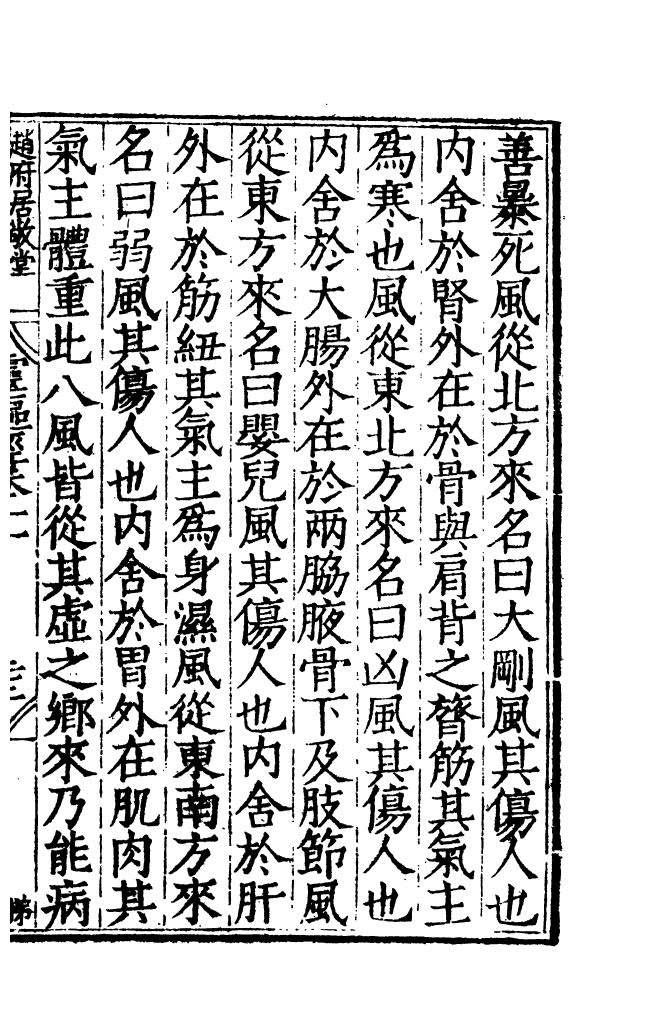 善暴死風從北方來名曰大剛風其傷人也
内舍於腎外在於骨與肩背之膂筋其氣主
爲寒也風從東北方來名曰凶風其傷人也
内舍於大腸外在於兩脇腋骨下及肢節風
從東方來名曰嬰兒風其傷人也内舍於肝
外在於筋紐其氣主爲身濕風從東南方來
名曰弱風其傷人也内舍於胃外在肌肉其
氣主體重此八風皆從其虛之鄉來乃能病
趙府居敬堂